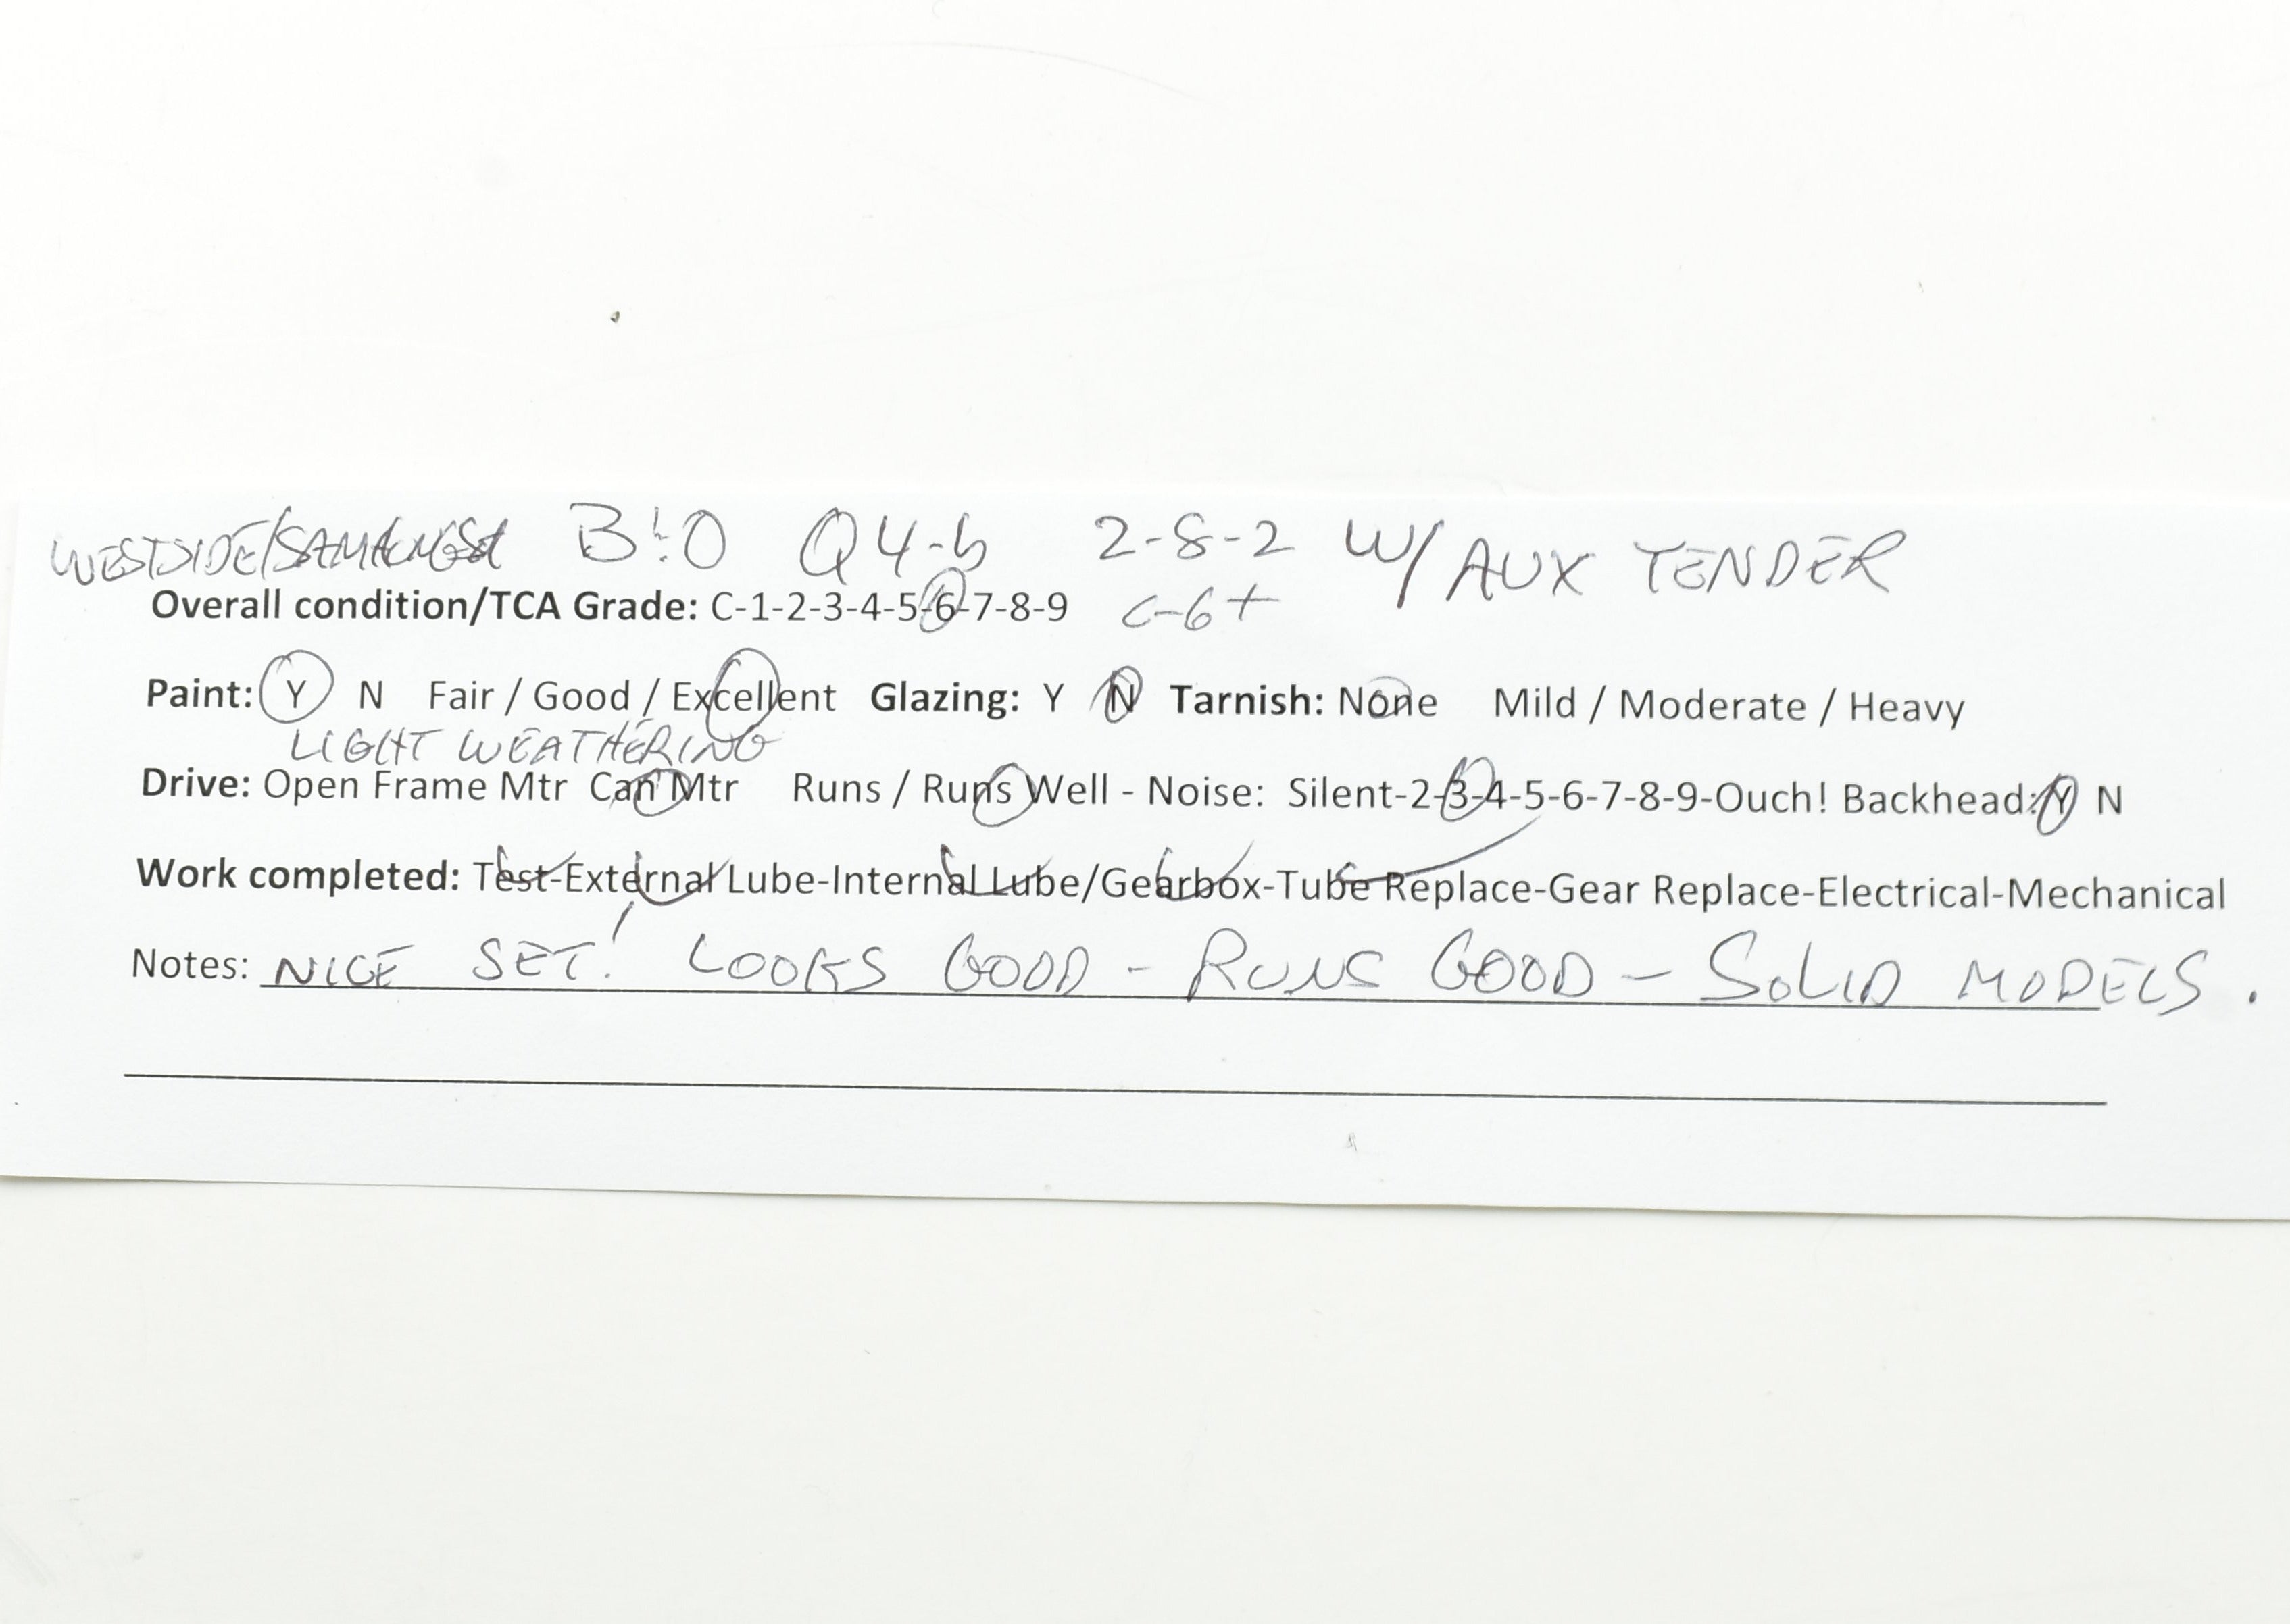 WESTSIDE/SAMHONGSA B&O Q4-b 2-8-2 W/ AUX TENDER
Overall condition/TCA Grade: C-1-2-3-4-5-6-7-8-9 C-6+
Paint: Y N Fair / Good / Excellent Glazing: Y N Tarnish: None Mild / Moderate / Heavy
LIGHT WEATHERING
Drive: Open Frame Mtr Can Mtr Runs / Runs Well - Noise: Silent-2-3-4-5-6-7-8-9-Ouch! Backhead: Y N
Work completed: Test-External Lube-Internal Lube/Gearbox-Tube Replace-Gear Replace-Electrical-Mechanical
Notes: NICE SET! LOOKS GOOD - RUNS GOOD - SOLID MODELS.